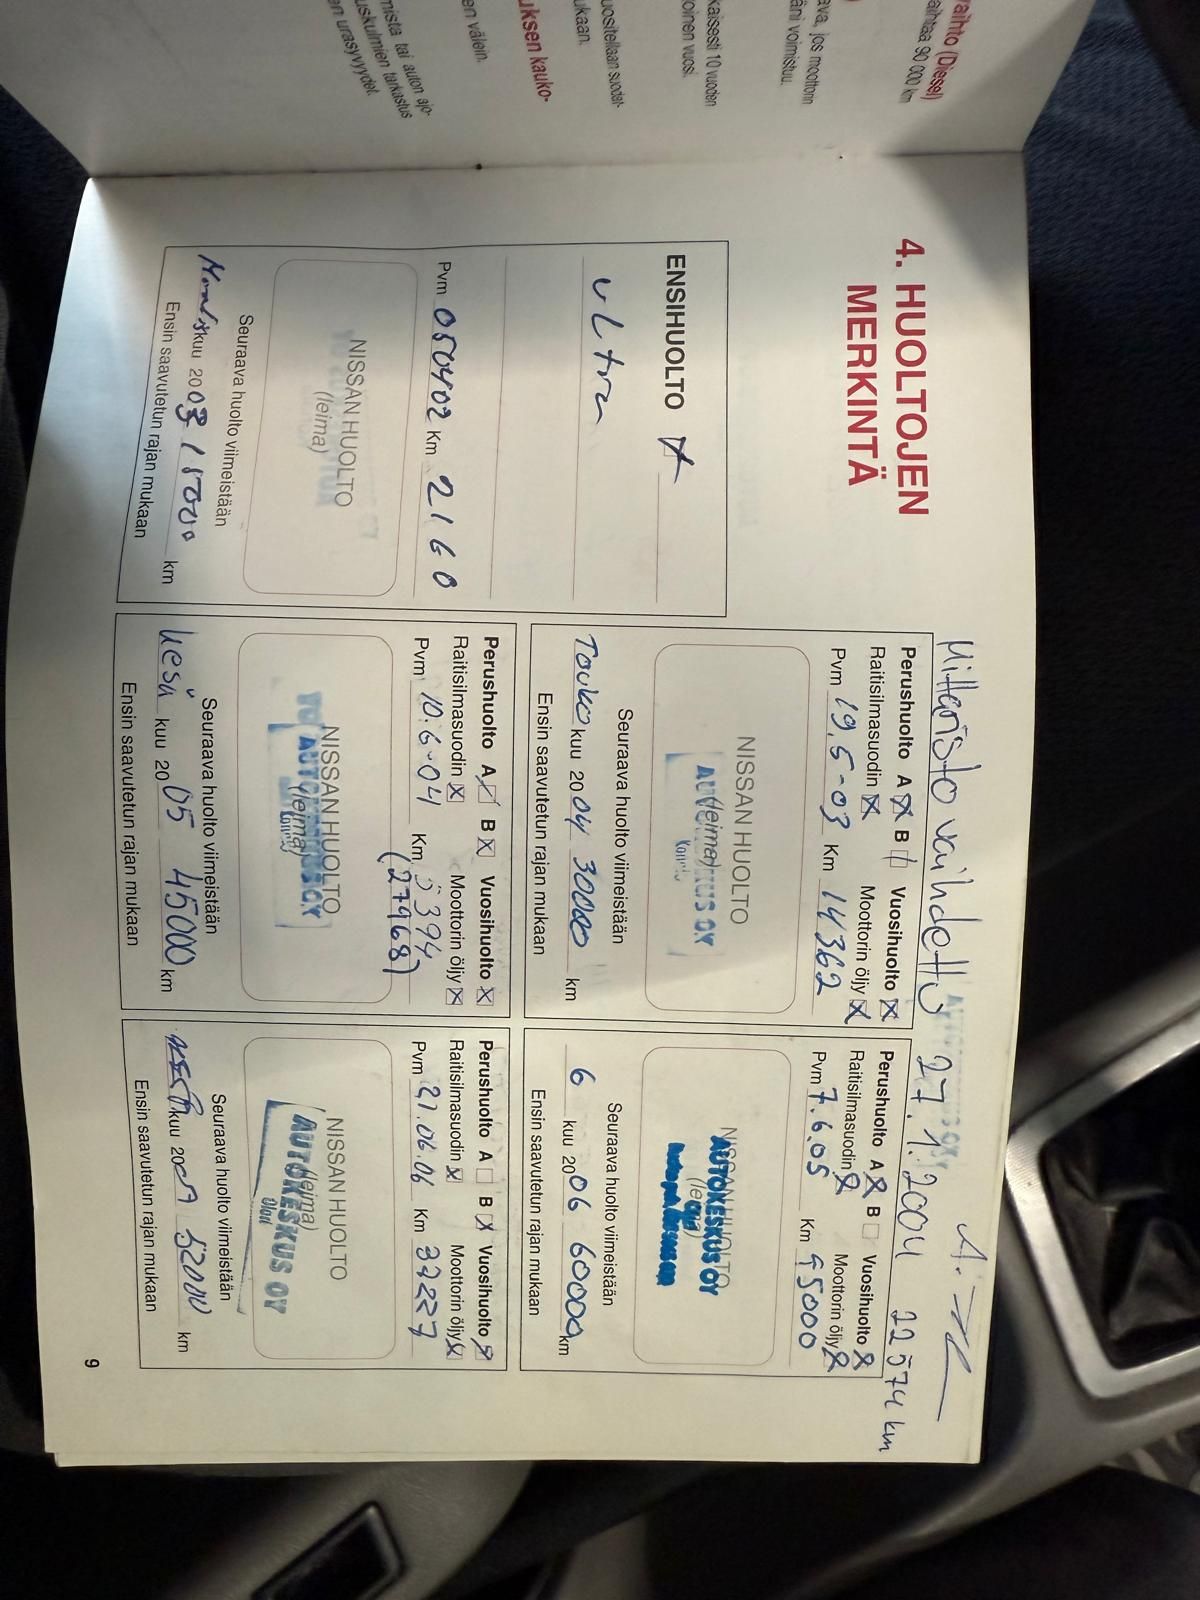 vaihto (Diesel)
aihtaa 90 000 km
ava, jos moottorin
ääni voimistuu.
kaisesti 10 vuoden
oinen vuosi.
uositellaan suodat-
ukaan.
uksen kauko-
en välein.
mista tai auton ajo-
uskulmien tarkastus
en urasyvyydet.
4. HUOLTOJEN
MERKINTÄ
ENSIHUOLTO X
ultra
Pvm 050402 Km 2160
NISSAN HUOLTO
(leima)
Seuraava huolto viimeistään
kuu 2003 15000 km
Ensin saavutetun rajan mukaan
Mittaristo vaihdettu 27.1.2004 22574 km
Perushuolto A X B Vuosihuolto X
Raitisilmasuodin X Moottorin öljy X
Pvm 19.5-03 Km 14362
NISSAN HUOLTO
(leima)
Seuraava huolto viimeistään
Touko kuu 2004 30000 km
Ensin saavutetun rajan mukaan
Perushuolto A X B Vuosihuolto X
Raitisilmasuodin X Moottorin öljy X
Pvm 7.6.05 Km 45000
NISSAN HUOLTO
(leima)
AUTOKESKUS OY
Seuraava huolto viimeistään
6 kuu 2006 60000 km
Ensin saavutetun rajan mukaan
Perushuolto A B X Vuosihuolto X
Raitisilmasuodin X Moottorin öljy X
Pvm 10.6-04 Km 5394
(27968)
NISSAN HUOLTO
(leima)
AUTOKESKUS OY
Seuraava huolto viimeistään
kesä kuu 2005 45000 km
Ensin saavutetun rajan mukaan
Perushuolto A B X Vuosihuolto X
Raitisilmasuodin X Moottorin öljy X
Pvm 21.06.06 Km 37227
NISSAN HUOLTO
(leima)
AUTOKESKUS OY
Olari
Seuraava huolto viimeistään
kuu 2007 52000 km
Ensin saavutetun rajan mukaan
9